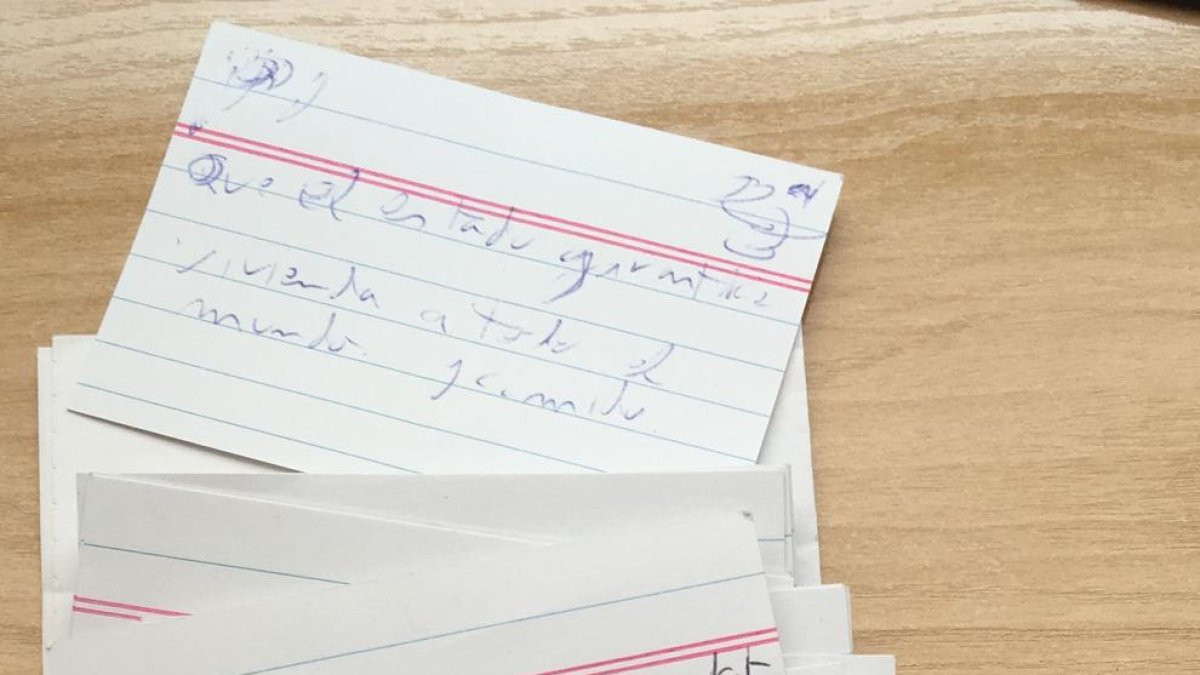 Que el estado garantice
vivienda a todo el
mundo. y comida.